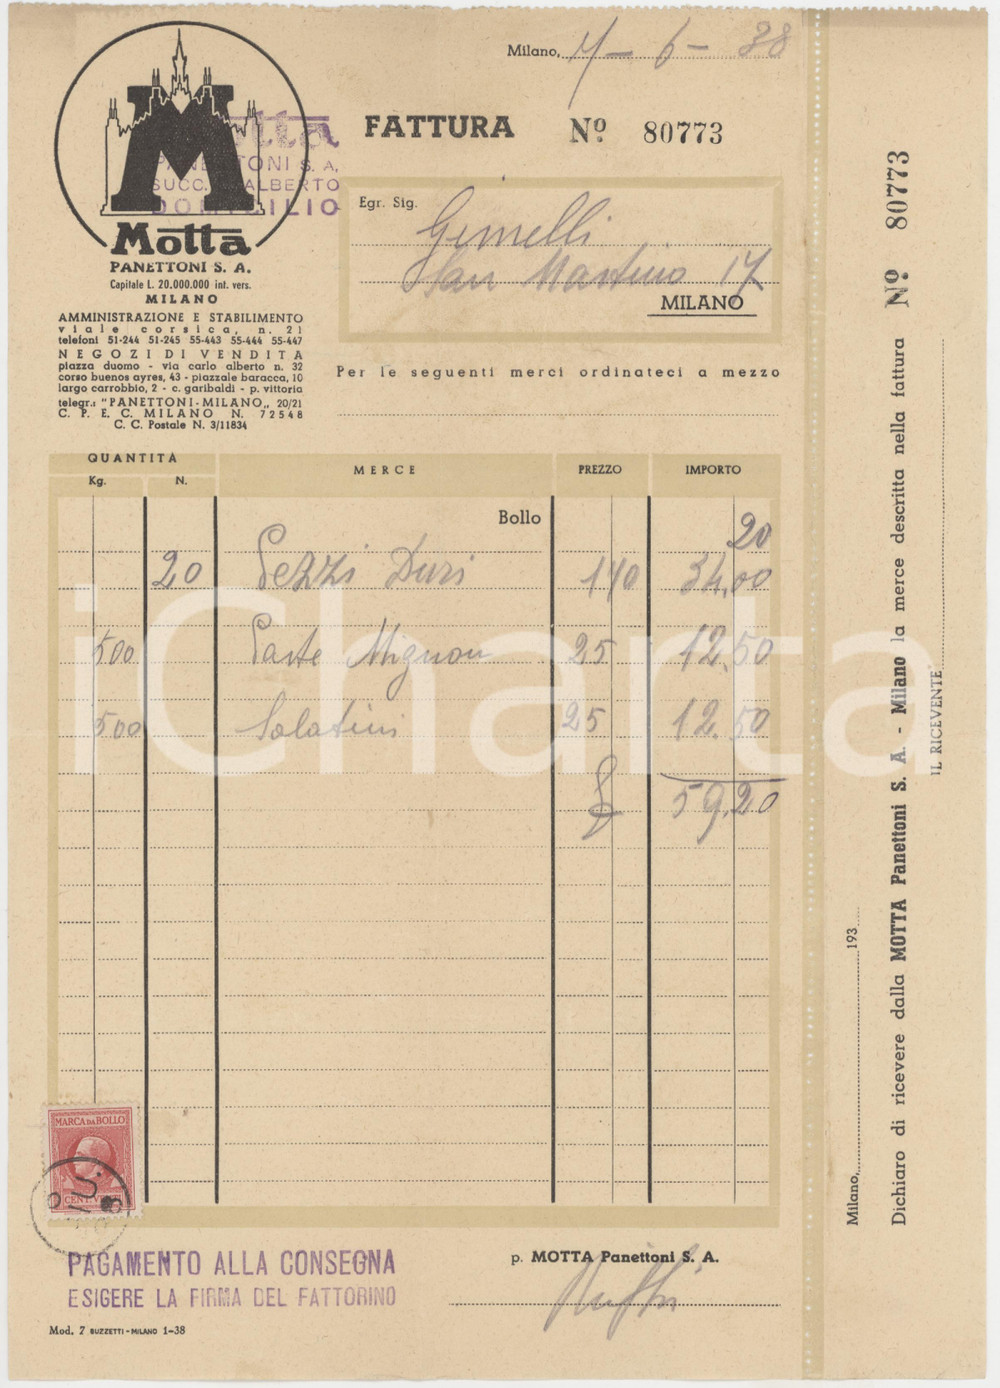 Milano, 7 - 6 - 38
M
Motta
PANETTONI S. A.
SUCC. C. ALBERTO
DOMICILIO
FATTURA Nº 80773
Motta
PANETTONI S. A.
Capitale L. 20.000.000 int. vers.
MILANO
AMMINISTRAZIONE E STABILIMENTO
viale corsica, n. 21
telefoni 51-244 51-245 55-443 55-444 55-447
NEGOZI DI VENDITA
piazza duomo - via carlo alberto n. 32
corso buenos ayres, 43 - piazzale baracca, 10
largo carrobbio, 2 - c. garibaldi - p. vittoria
telegr.: "PANETTONI-MILANO„ 20/21
C. P. E. C. MILANO N. 72548
C. C. Postale N. 3/11834
Egr. Sig. Gimelli
San Martino 17
MILANO
Per le seguenti merci ordinateci a mezzo
QUANTITÀ MERCE PREZZO IMPORTO
Kg. N.
Bollo 20
20 Pezzi Duri 170 34,00
500 Paste Mignon 25 12.50
500 Salatini 25 12.50
£ 59.20
MARCA DA BOLLO
CENT. VENTI
PAGAMENTO ALLA CONSEGNA
ESIGERE LA FIRMA DEL FATTORINO
p. MOTTA Panettoni S. A.
Mod. 7 BUZZETTI-MILANO 1-38
Nº 80773
Dichiaro di ricevere dalla MOTTA Panettoni S. A. - Milano la merce descritta nella fattura
IL RICEVENTE
Milano, 193
iCharta